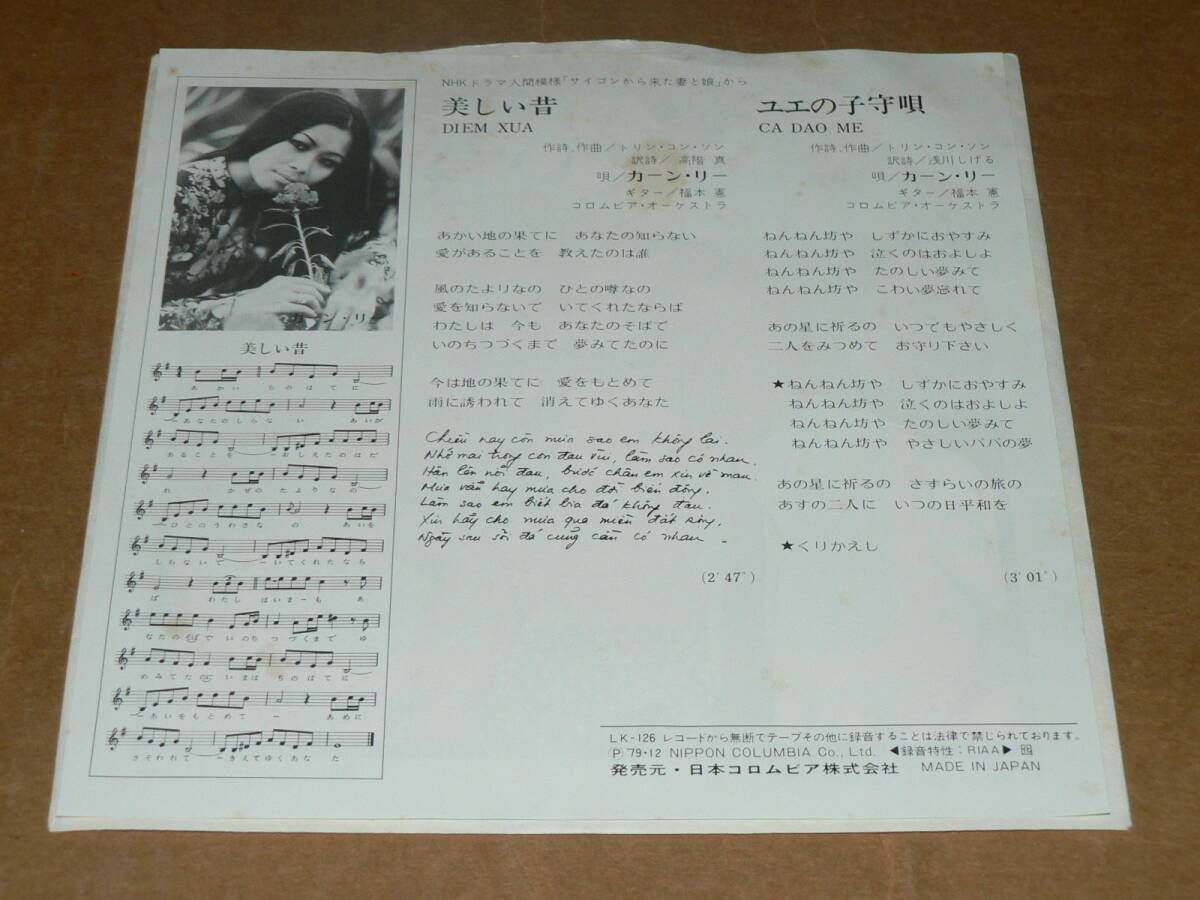 NHKドラマ人間模様「サイゴンから来た妻と娘」から
美しい昔
DIEM XUA
作詩、作曲/トリン・コン・ソン
訳詩/高階 真
唄/カーン・リー
ギター/福本 憲
コロムビア・オーケストラ
あかい地の果てに あなたの知らない
愛があることを 教えたのは誰
風のたよりなの ひとの噂なの
愛を知らないで いてくれたならば
わたしは 今も あなたのそばで
いのちつづくまで 夢みてたのに
今は地の果てに 愛をもとめて
雨に誘われて 消えてゆくあなた
Chiều nay còn mưa sao em không lại.
Nhớ mai trong cơn đau vùi, làm sao có nhau.
Hằn lên nỗi đau, bước chân em xin về mau.
Mưa vẫn hay mưa cho đời biển động.
Làm sao em biết bia đá không đau.
Xin hãy cho mưa qua miền đất rộng,
Ngày sau sỏi đá cũng cần có nhau.
(2′47″)
ユエの子守唄
CA DAO ME
作詩、作曲/トリン・コン・ソン
訳詩/浅川しげる
唄/カーン・リー
ギター/福本 憲
コロムビア・オーケストラ
ねんねん坊や しずかにおやすみ
ねんねん坊や 泣くのはおよしよ
ねんねん坊や たのしい夢みて
ねんねん坊や こわい夢忘れて
あの星に祈るの いつでもやさしく
二人をみつめて お守り下さい
★ねんねん坊や しずかにおやすみ
ねんねん坊や 泣くのはおよしよ
ねんねん坊や たのしい夢みて
ねんねん坊や やさしいパパの夢
あの星に祈るの さすらいの旅の
あすの二人に いつの日平和を
★くりかえし
(3′01″)
カーン・リー
美しい昔
あかい ちのはてに
あなたのしらな い あいが
あることを ーおしえたのはだ
れ かぜのたよりなの
ひとのうわさな の あいを
しらないで ーいてくれたなら
ば わたし はいまーも あ
なたのそばで いのち つづくまで ゆ
めみてたのに いまは ちのはてに
ーあいをもとめて ー あめに
さそわれて ーきえてゆくあな た
LK-126 レコードから無断でテープその他に録音することは法律で禁じられております。
(P)'79・12 NIPPON COLUMBIA Co., Ltd. ◀録音特性:RIAA▶
発売元・日本コロムビア株式会社 MADE IN JAPAN